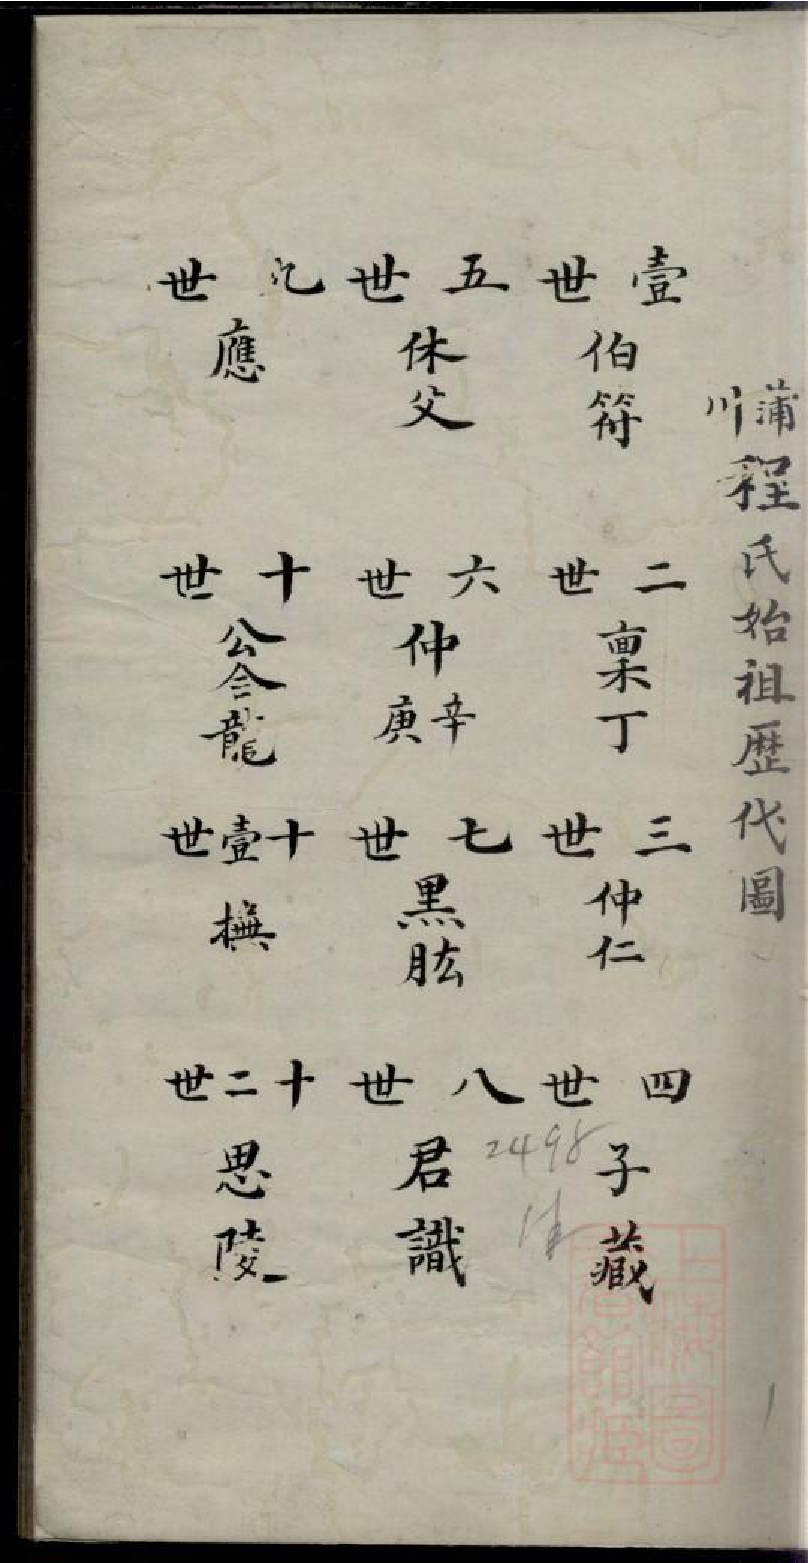 蒲川程氏始祖歷代圖
壹世
伯符
二世
稟丁
三世
仲仁
四世
子藏
五世
休父
六世
仲辛庚
七世
黑肱
八世
君識
九世
應
十世
公龍
十壹世
橅
十二世
思陵
2498
上海圖書館藏